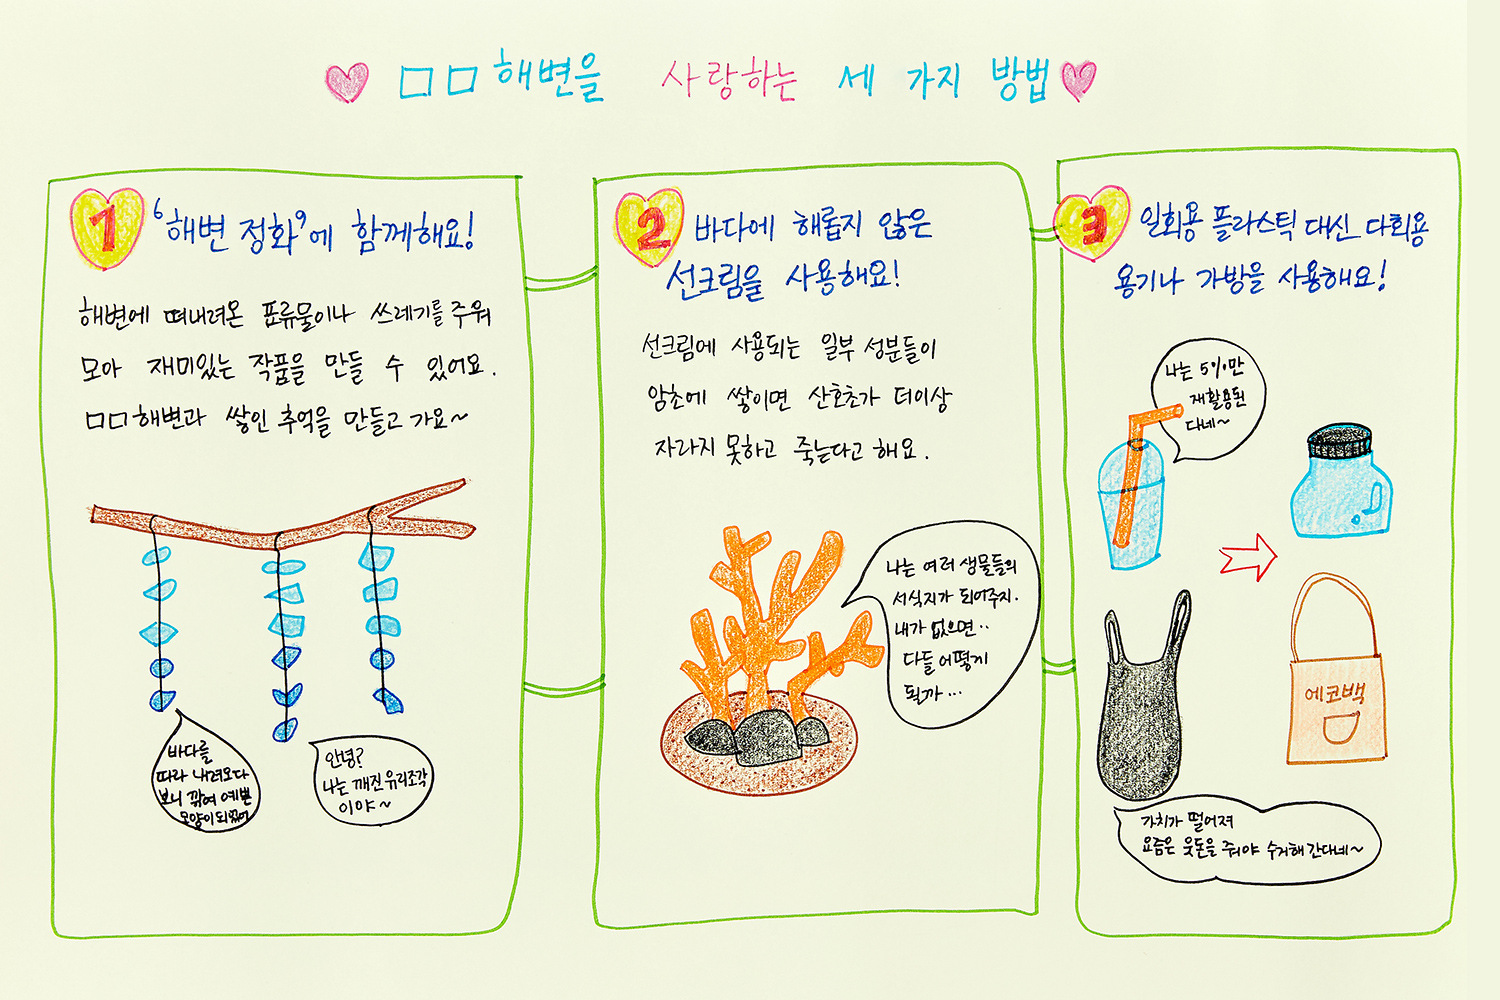 □□ 해변을 사랑하는 세 가지 방법
1 '해변 정화'에 함께해요!
해변에 떠내려온 표류물이나 쓰레기를 주워
모아 재미있는 작품을 만들 수 있어요.
□□해변과 쌓인 추억을 만들고 가요~
바다를
따라 내려오다
보니 깎여 예쁜
모양이 되었어
안녕?
나는 깨진 유리조각
이야~
2 바다에 해롭지 않은
선크림을 사용해요!
선크림에 사용되는 일부 성분들이
암초에 쌓이면 산호초가 더이상
자라지 못하고 죽는다고 해요.
나는 여러 생물들의
서식지가 되어주지.
내가 없으면..
다들 어떻게
될까...
3 일회용 플라스틱 대신 다회용
용기나 가방을 사용해요!
나는 5%만
재활용된
다네~
에코백
가치가 떨어져
요즘은 웃돈을 줘야 수거해 간다네~